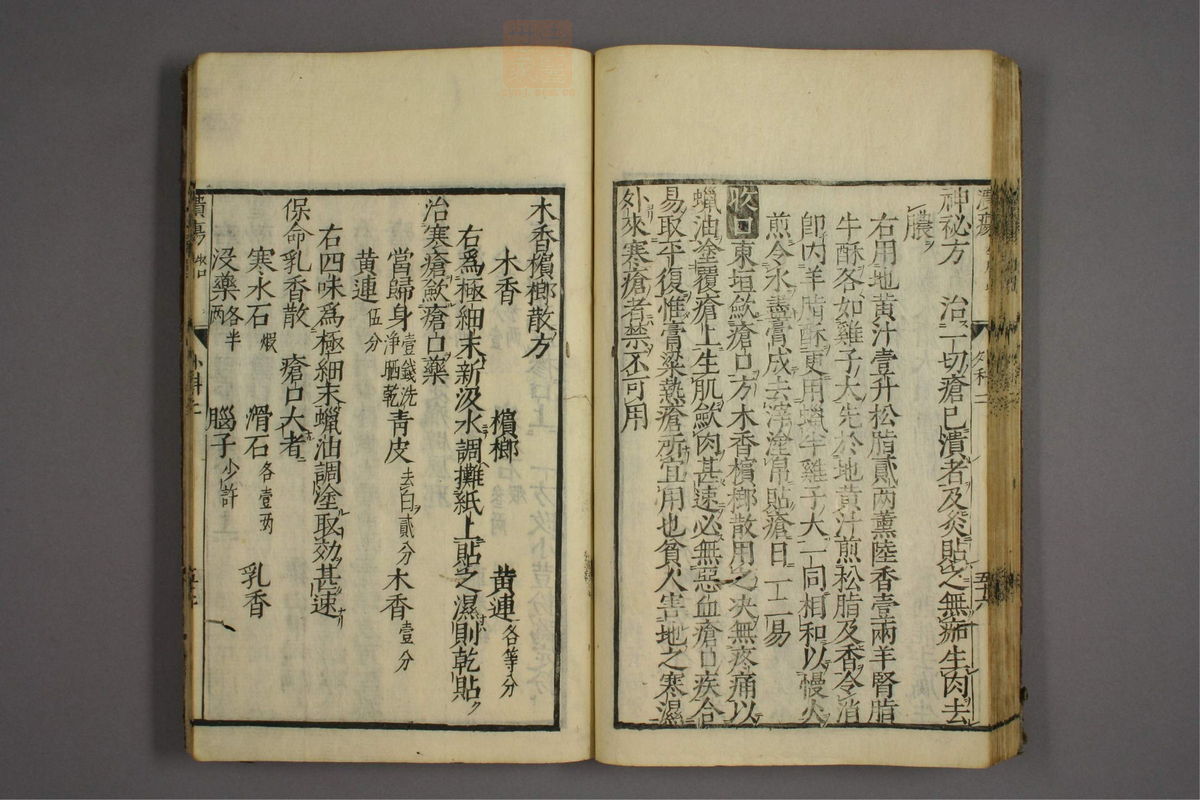 神秘方　治一切瘡已潰者及炙貼之無痂生肉去
膿
右用地黃汁壹升松脂貳兩薰陸香壹兩羊腎脂
牛酥各如雞子大先於地黃汁煎松脂及香令消
卽內羊脂酥更用蠟半雞子大一同相和以慢火
煎令水盡膏成去滓塗帛貼瘡日一二易
收口　東垣歛瘡口方木香檳榔散用之決無疼痛以
蠟油塗覆瘡上生肌歛肉甚速必無惡血瘡口疾合
易取平復惟膏粱熱瘡所宜用也貧人害地之寒濕
外來寒瘡者禁不可用
木香檳榔散方
木香　檳榔　黃連各等分
右爲極細末新汲水調攤紙上貼之濕則乾貼
治寒瘡歛瘡口藥
當歸身壹錢洗淨晒乾　青皮去白貳分　木香壹分
黃連伍分
右四味爲極細末蠟油調塗取効甚速
保命乳香散　瘡口大者
寒水石煆　滑石各壹兩　乳香
沒藥各半兩　腦子少許